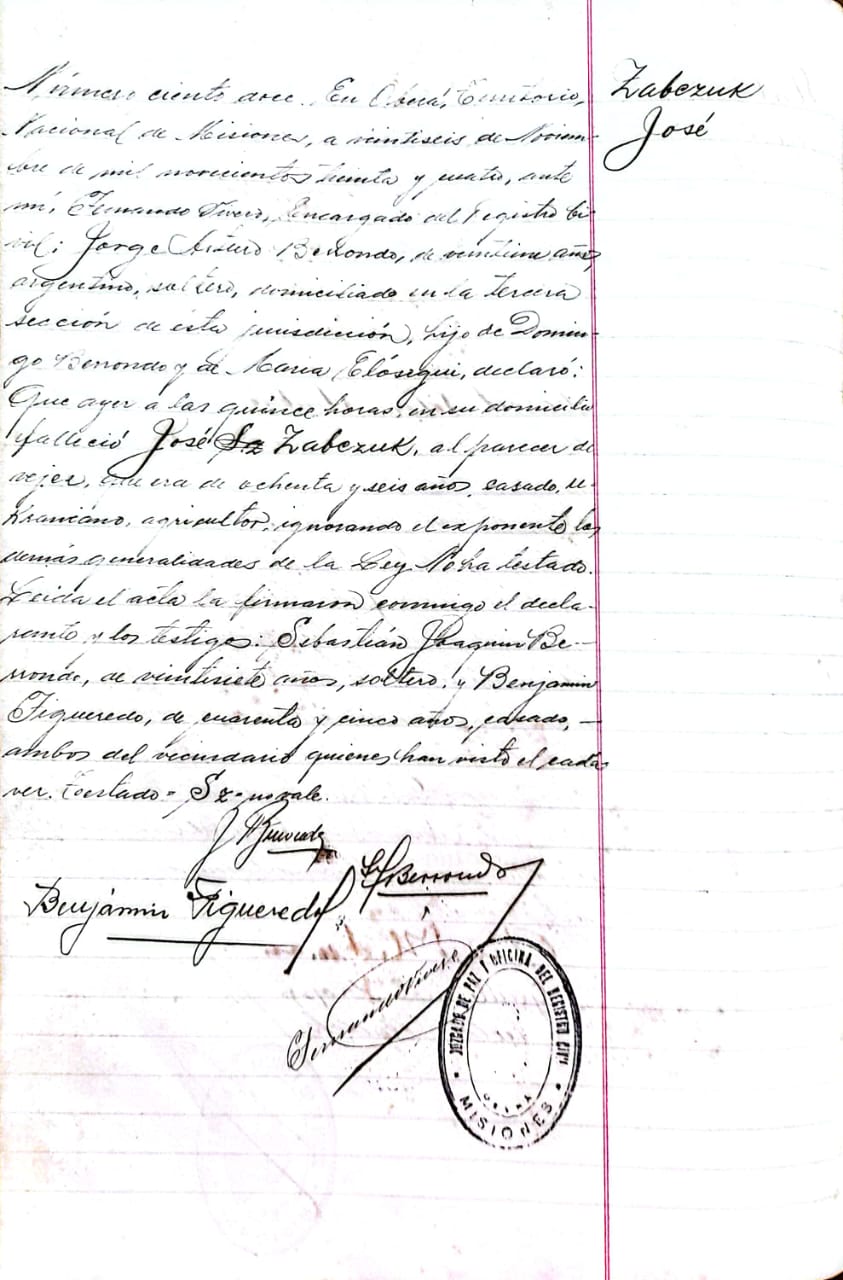 Zabczuk
José
Número ciento doce. En Oberá, Territorio,
Nacional de Misiones, a veintiseis de Noviem-
bre de mil novecientos treinta y cuatro, ante
mí, Fernando Vivero, Encargado del Registro Ci-
vil; Jorge Arturo Berrondo, de años,
argentino, soltero, domiciliado en la tercera
sección de esta jurisdicción, hijo de Domin-
go Berrondo y de María Elósegui, declaró:
Que ayer a las quince horas, en su domicilio
falleció José Sz Zabczuk, al parecer de
vejez, que era de ochenta y seis años, casado, u-
kraniano, agricultor, ignorando el exponente las
demás generalidades de la Ley. No ha testado.
Leida el acta la firmaron conmigo el decla-
rante y los testigos: Sebastián Joaquin Be-
rrondo, de veintisiete años, soltero, y Benjamin
Figueredo, de cuarenta y cinco años, casado,-
ambos del vecindario quienes han visto el cadá
ver. Testado = Sz = no vale.
Berrondo
Benjámin Figueredo
Fernando Vivero
JUZGADO DE PAZ Y OFICINA DEL REGISTRO CIVIL
OBERA
MISIONES